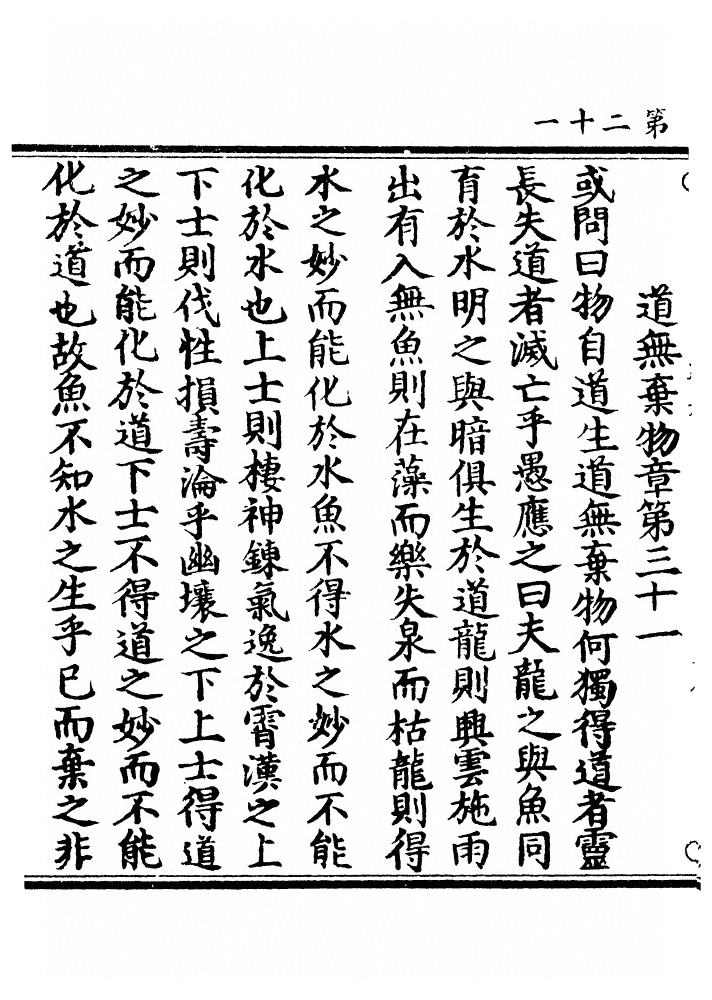 第二十一
道無棄物章第三十一
或問曰物自道生道無棄物何獨得道者靈
長失道者滅亡乎愚應之曰夫龍之與魚同
育於水明之與暗俱生於道龍則興雲施雨
出有入無魚則在藻而樂失泉而枯龍則得
水之妙而能化於水魚不得水之妙而不能
化於水也上士則棲神鍊氣逸於霄漢之上
下士則伐性損壽淪乎幽壤之下上士得道
之妙而能化於道下士不得道之妙而不能
化於道也故魚不知水之生乎已而棄之非